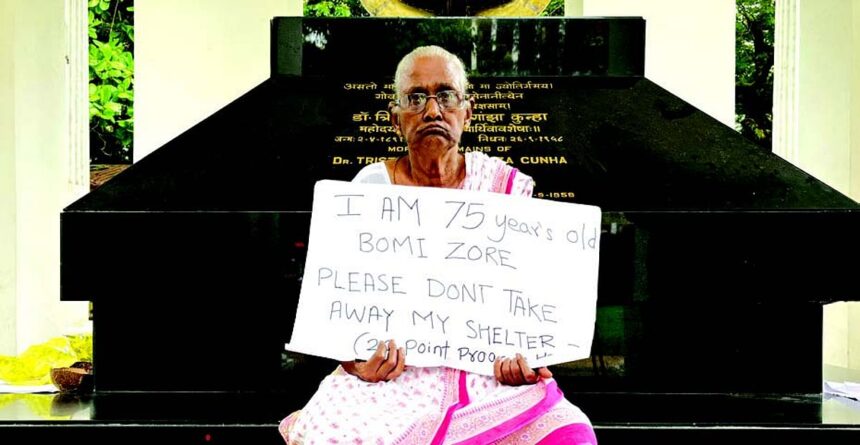 असतो
मा ज्योतिर्गमय।
गोव
सेनानीत्वेन
डॉ. त्रि
गांझा कुन्हा
महोदय
र्थिवावशेषाः॥
जन्मः २-४-१८९१
निधनः २६-९-१९५८
MOR
MAINS OF
DR. TRIST
ZA CUNHA
-9-1958
I AM 75 year's old
BOMI ZORE
PLEASE DONT TAKE
AWAY MY SHELTER -
Point